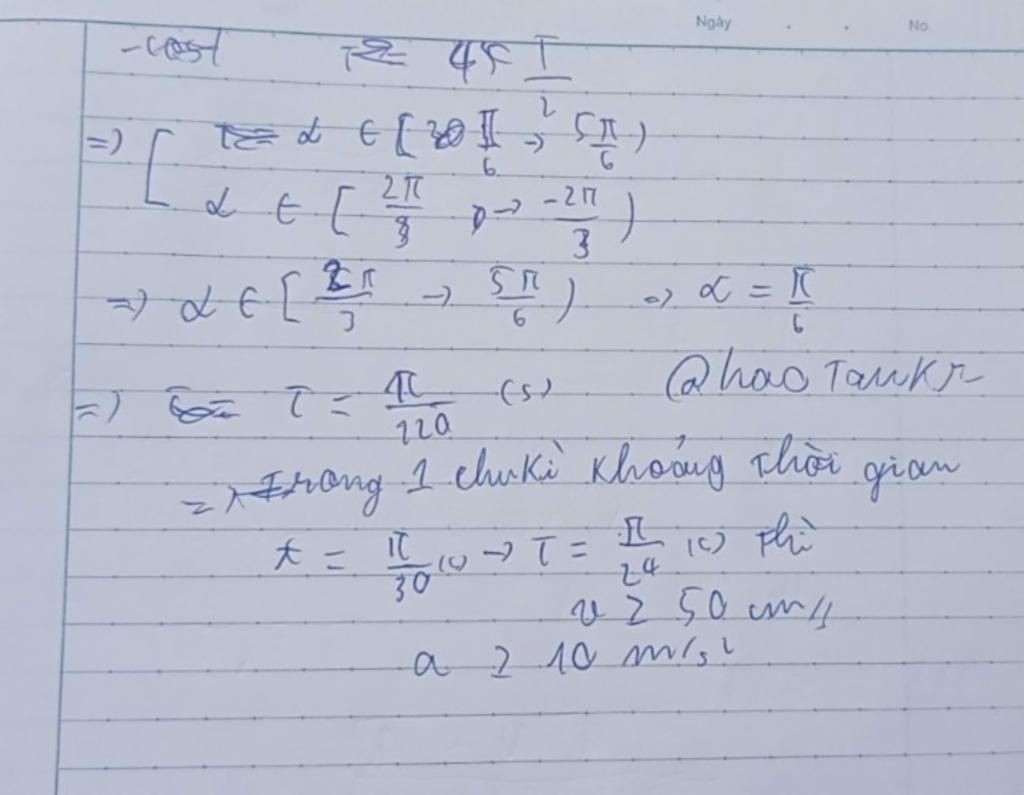 Ngày . . No
-cost 45 T/2
=> [ α ∈ [ π/6 -> 5π/6 )
α ∈ [ 2π/3 -> -2π/3 )
=> α ∈ [ 2π/3 -> 5π/6 ) => α = π/6
=> T = π/120 (s) @haoTaukr
=> Trong 1 chu kì khoảng thời gian
t = π/30 (s) -> T = π/24 (s) thì
v ≥ 50 cm/s
a ≥ 10 m/s²